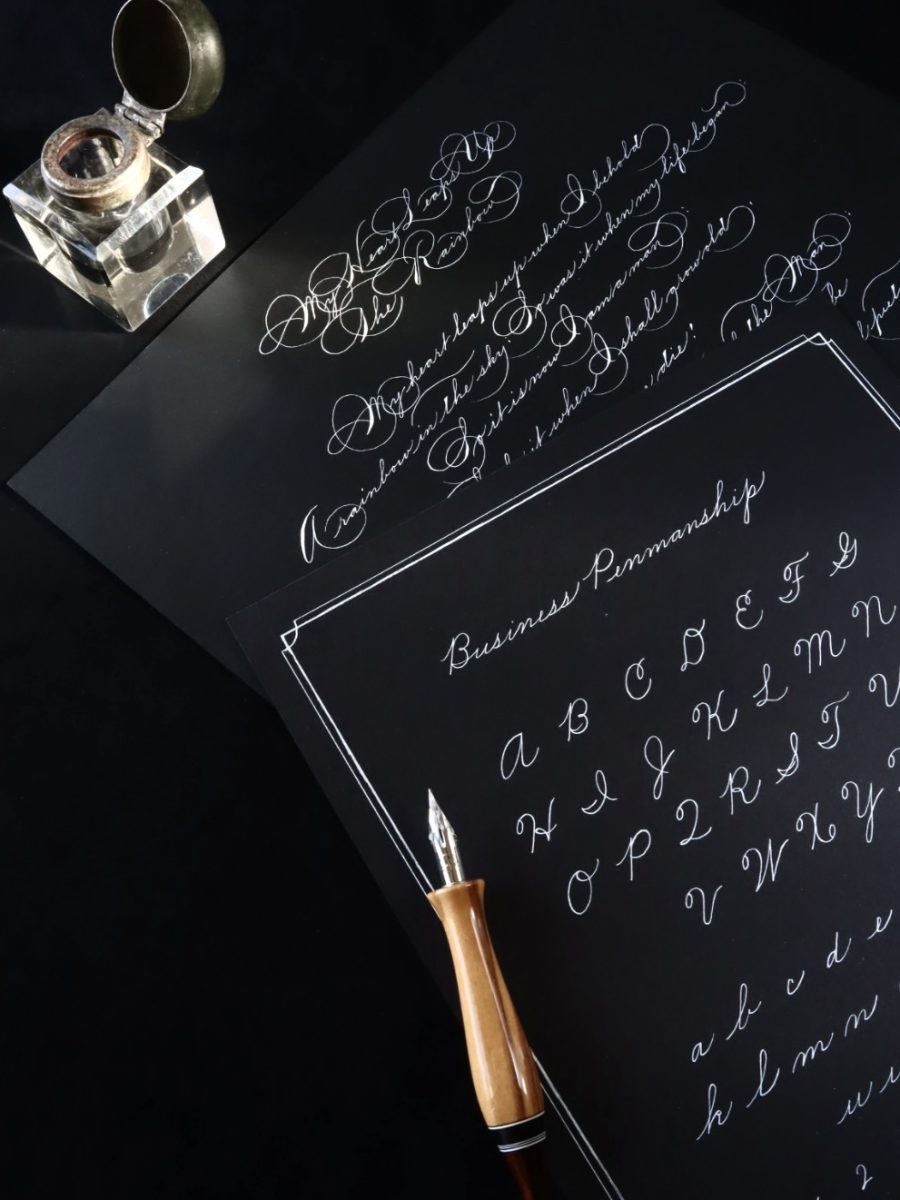 My Heart Leaps Up
The Rainbow
My heart leaps up when I behold
A rainbow in the sky: So was it when my life began:
So it is now I am a man:
it when I shall grow old
die!
the Man:
be
Business Penmanship
A B C D E F G
H I J K L M N
O P Q R S T U
V W X Y
a b c d e
k l m n
u
2